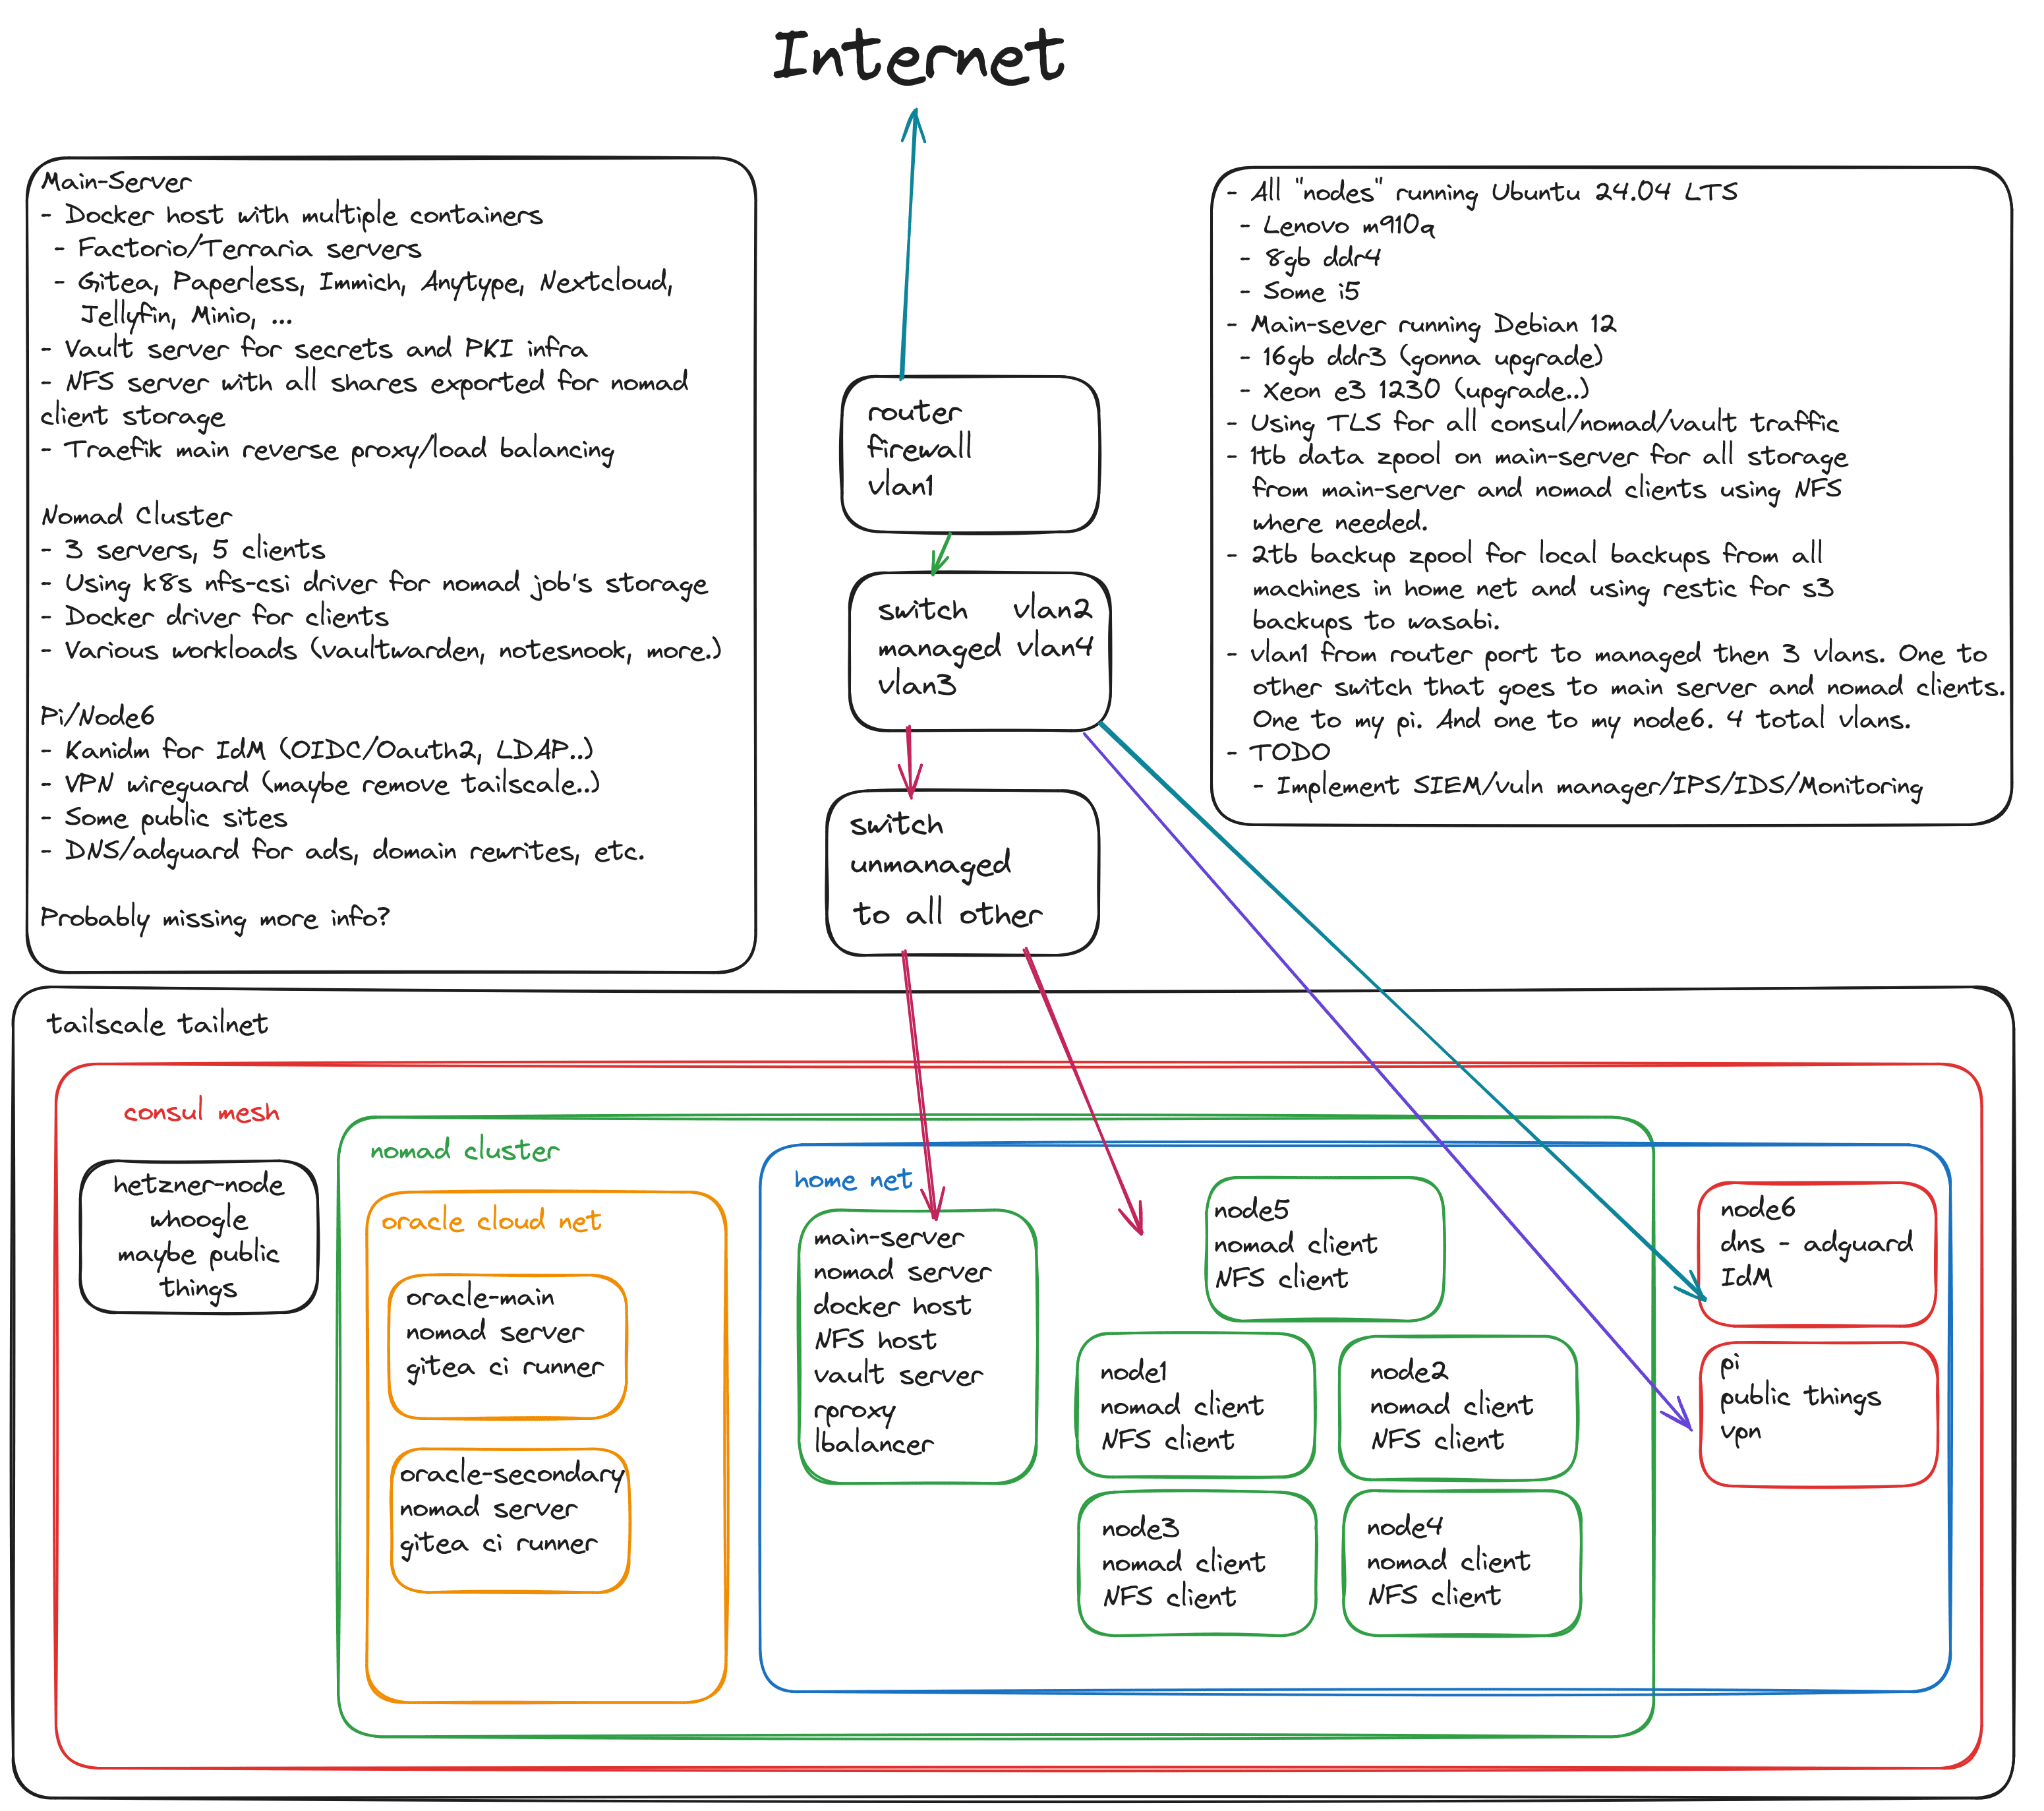 Internet
Main-Server
- Docker host with multiple containers
- Factorio/Terraria servers
- Gitea, Paperless, Immich, Anytype, Nextcloud,
Jellyfin, Minio, ...
- Vault server for secrets and PKI infra
- NFS server with all shares exported for nomad
client storage
- Traefik main reverse proxy/load balancing
Nomad Cluster
- 3 servers, 5 clients
- Using k8s nfs-csi driver for nomad job's storage
- Docker driver for clients
- Various workloads (vaultwarden, notesnook, more.)
Pi/Node6
- Kanidm for IdM (OIDC/Oauth2, LDAP..)
- VPN wireguard (maybe remove tailscale..)
- Some public sites
- DNS/adguard for ads, domain rewrites, etc.
Probably missing more info?
- All "nodes" running Ubuntu 24.04 LTS
- Lenovo m910q
- 8gb ddr4
- Some i5
- Main-sever running Debian 12
- 16gb ddr3 (gonna upgrade)
- Xeon e3 1230 (upgrade..)
- Using TLS for all consul/nomad/vault traffic
- 1tb data zpool on main-server for all storage
from main-server and nomad clients using NFS
where needed.
- 2tb backup zpool for local backups from all
machines in home net and using restic for s3
backups to wasabi.
- vlan1 from router port to managed then 3 vlans. One to
other switch that goes to main server and nomad clients.
One to my pi. And one to my node6. 4 total vlans.
- TODO
- Implement SIEM/vuln manager/IPS/IDS/Monitoring
router
firewall
vlan1
switch vlan2
managed vlan4
vlan3
switch
unmanaged
to all other
tailscale tailnet
consul mesh
hetzner-node
whoogle
maybe public
things
nomad cluster
oracle cloud net
oracle-main
nomad server
gitea ci runner
oracle-secondary
nomad server
gitea ci runner
home net
main-server
nomad server
docker host
NFS host
vault server
rproxy
lbalancer
node5
nomad client
NFS client
node1
nomad client
NFS client
node2
nomad client
NFS client
node3
nomad client
NFS client
node4
nomad client
NFS client
node6
dns - adguard
IdM
pi
public things
vpn